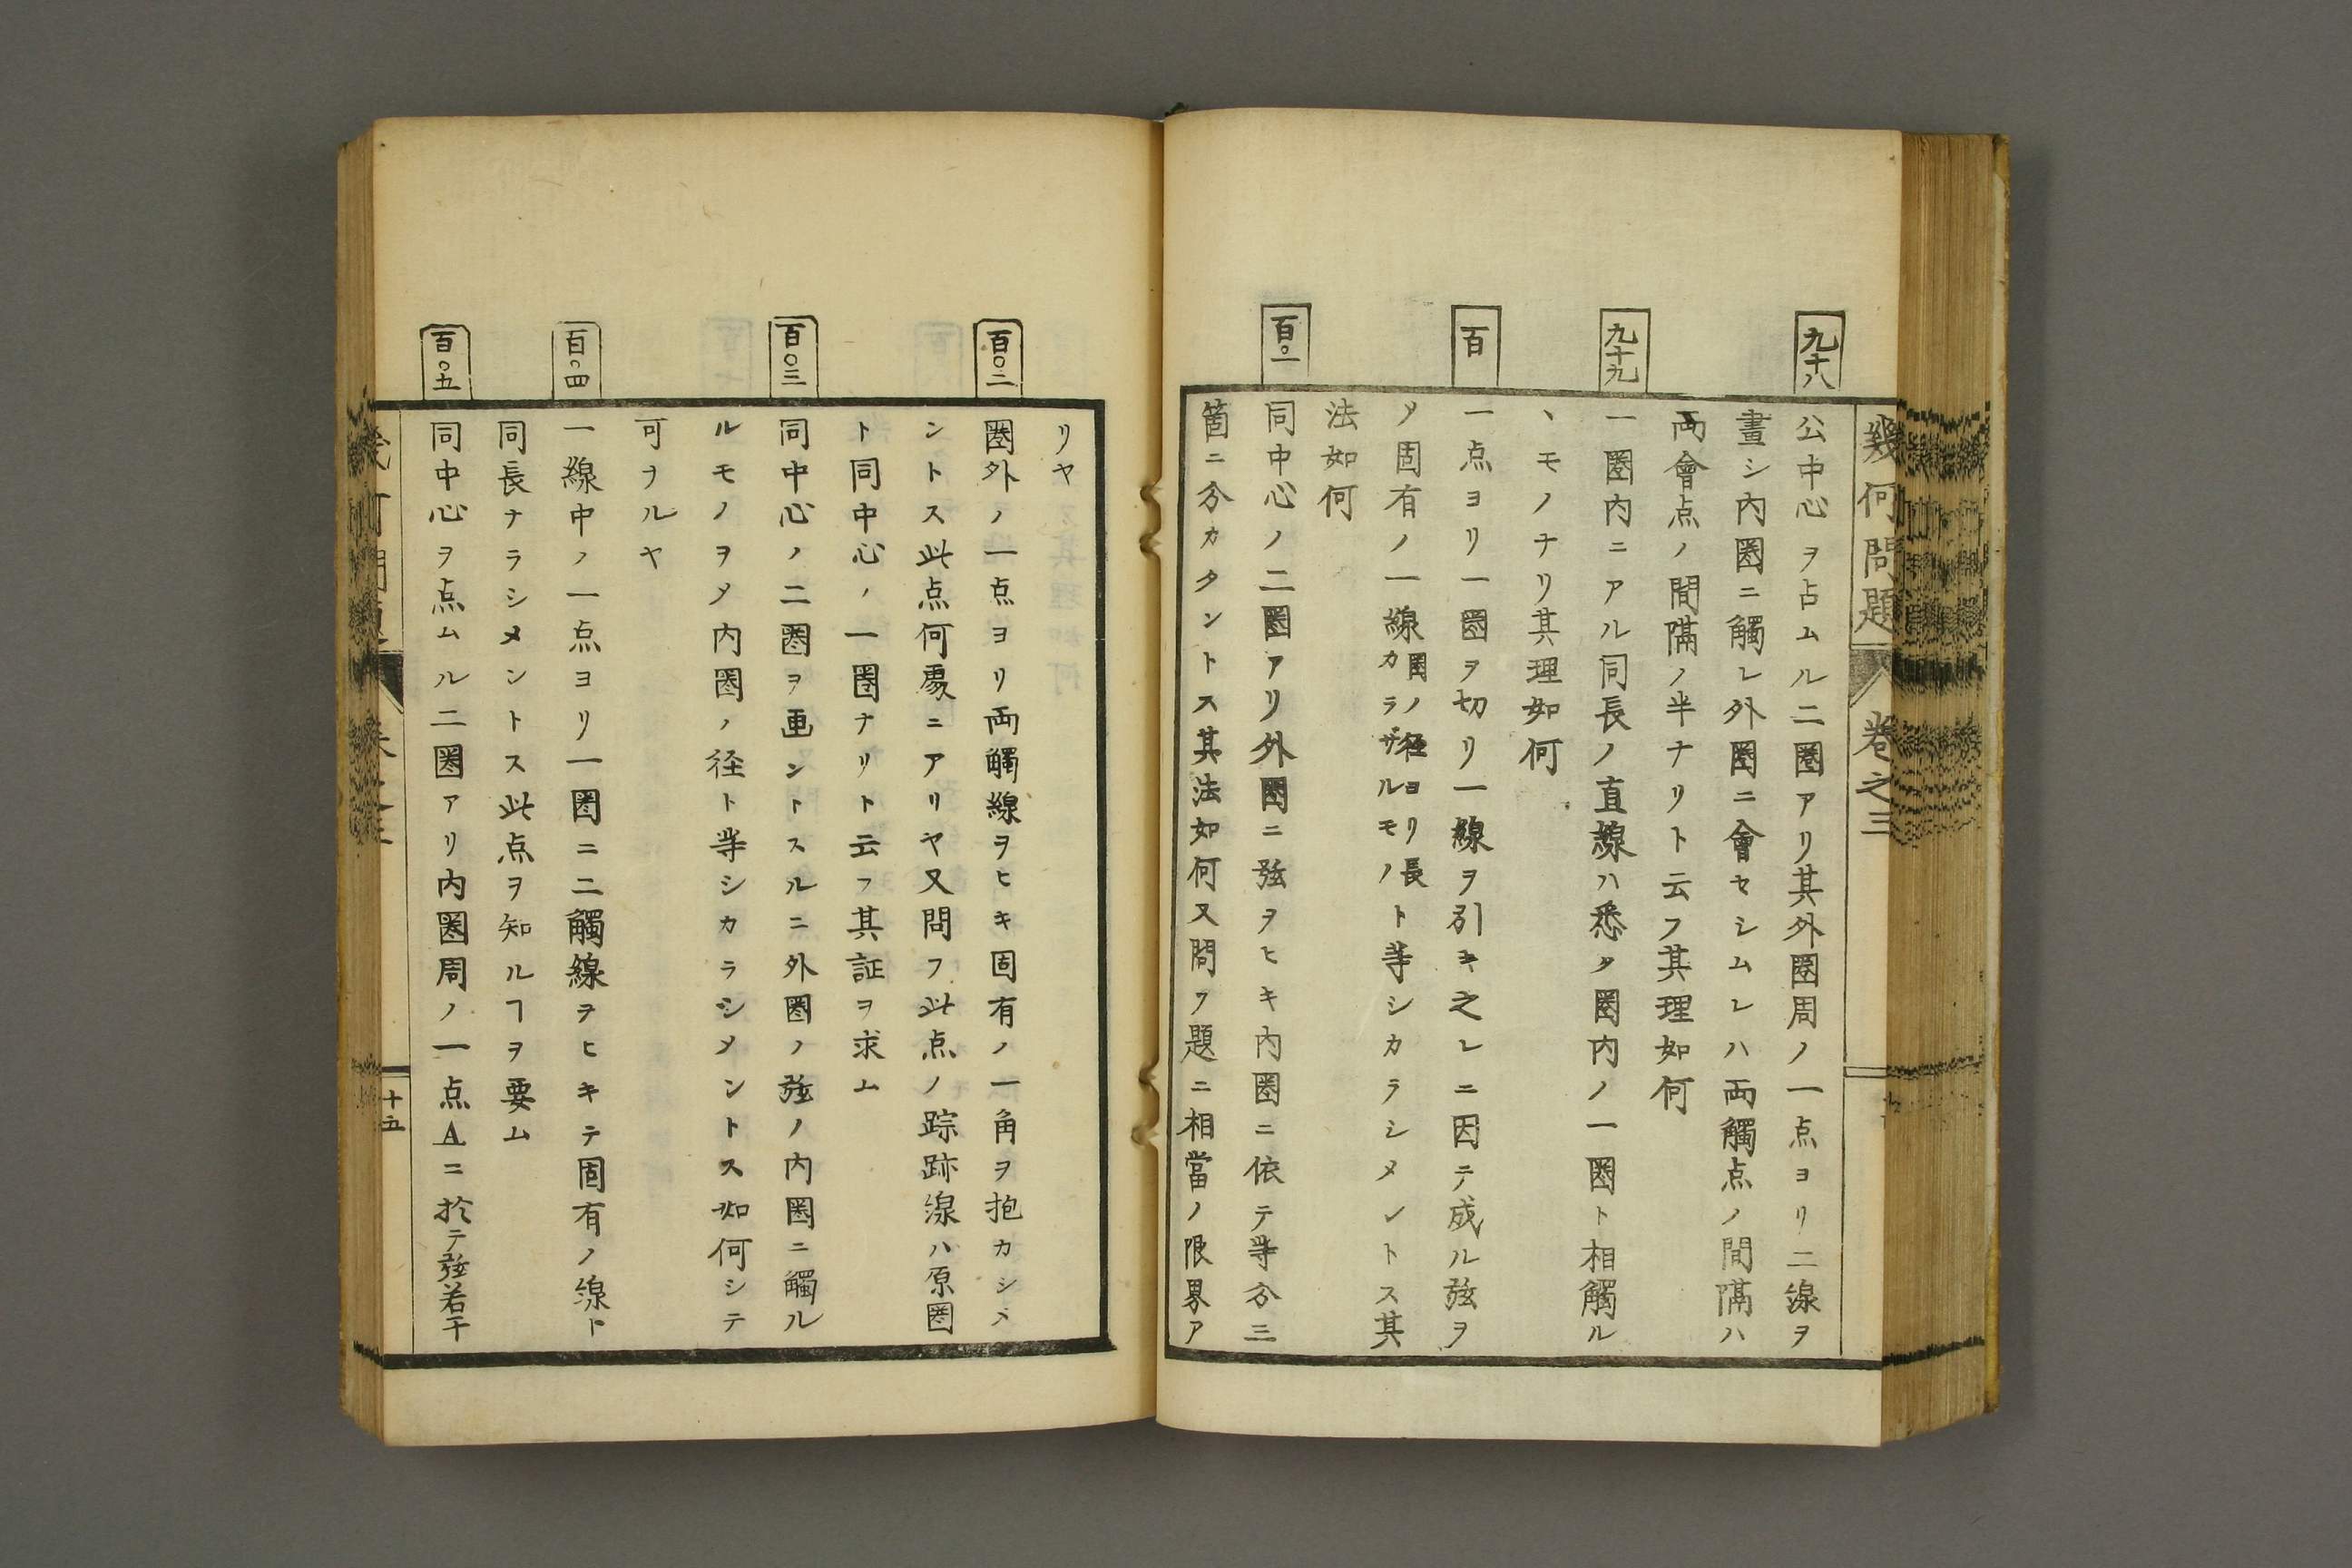 幾何問題 巻之三
九十八
公中心ヲ占ムル二圏アリ其外圏周ノ一点ヨリ二線ヲ
畫シ内圏ニ觸レ外圏ニ會セシムレハ両觸点ノ間隔ハ
両會点ノ間隔ノ半ナリト云フ其理如何
九十九
一圏内ニアル同長ノ直線ハ悉ク圏内ノ一圏ト相觸ル
ヽモノナリ其理如何
百
一点ヨリ一圏ヲ切リ一線ヲ引キ之レニ因テ成ル弦ヲ
〆固有ノ一線圏ノ径ヨリ長カラザルモノト等シカラシメントス其
法如何
百〇一
同中心ノ二圏アリ外圏ニ弦ヲヒキ内圏ニ依テ等分三
箇ニ分カタントス其法如何又問フ題ニ相當ノ限界ア
リヤ
百〇二
圏外ノ一点ヨリ両觸線ヲヒキ固有ノ一角ヲ抱カシメ
ントス此点何處ニアリヤ又問フ此点ノ踪跡線ハ原圏
ト同中心ノ一圏ナリト云フ其証ヲ求ム
百〇三
同中心ノ二圏ヲ画ントスルニ外圏ノ弦ノ内圏ニ觸ル
ルモノヲ〆内圏ノ径ト等シカラシメントス如何シテ
可ヲルヤ
百〇四
一線中ノ一点ヨリ一圏ニ二觸線ヲヒキテ固有ノ線ト
同長ナラシメントス此点ヲ知ルヿヲ要ム
百〇五
同中心ヲ点ムル二圏アリ内圏周ノ一点Aニ於テ弦若干
十五